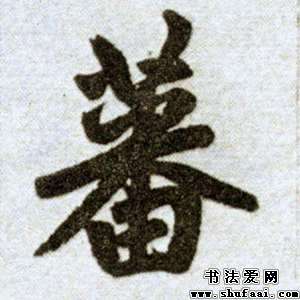 蕃
书法爱网
www.shufaai.com